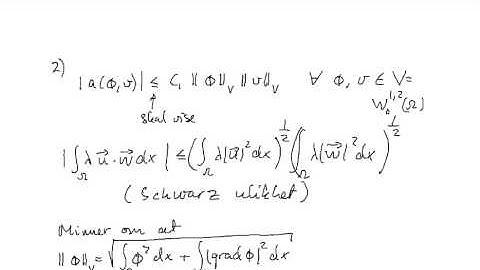 2) |a(ϕ,v)| ≤ C₁ ‖ϕ‖_V ‖v‖_V ∀ ϕ, v ∈ V =
↑ skal vise W₀^{1,2}(Ω)
|∫_Ω λ u⃗·w⃗ dx| ≤ (∫_Ω λ|u⃗|² dx)^{1/2} (∫_Ω λ|w⃗|² dx)^{1/2}
(Schwarz ulikhet)
Minner om at
‖ϕ‖_V = √(∫_Ω ϕ² dx + ∫|grad ϕ|² dx